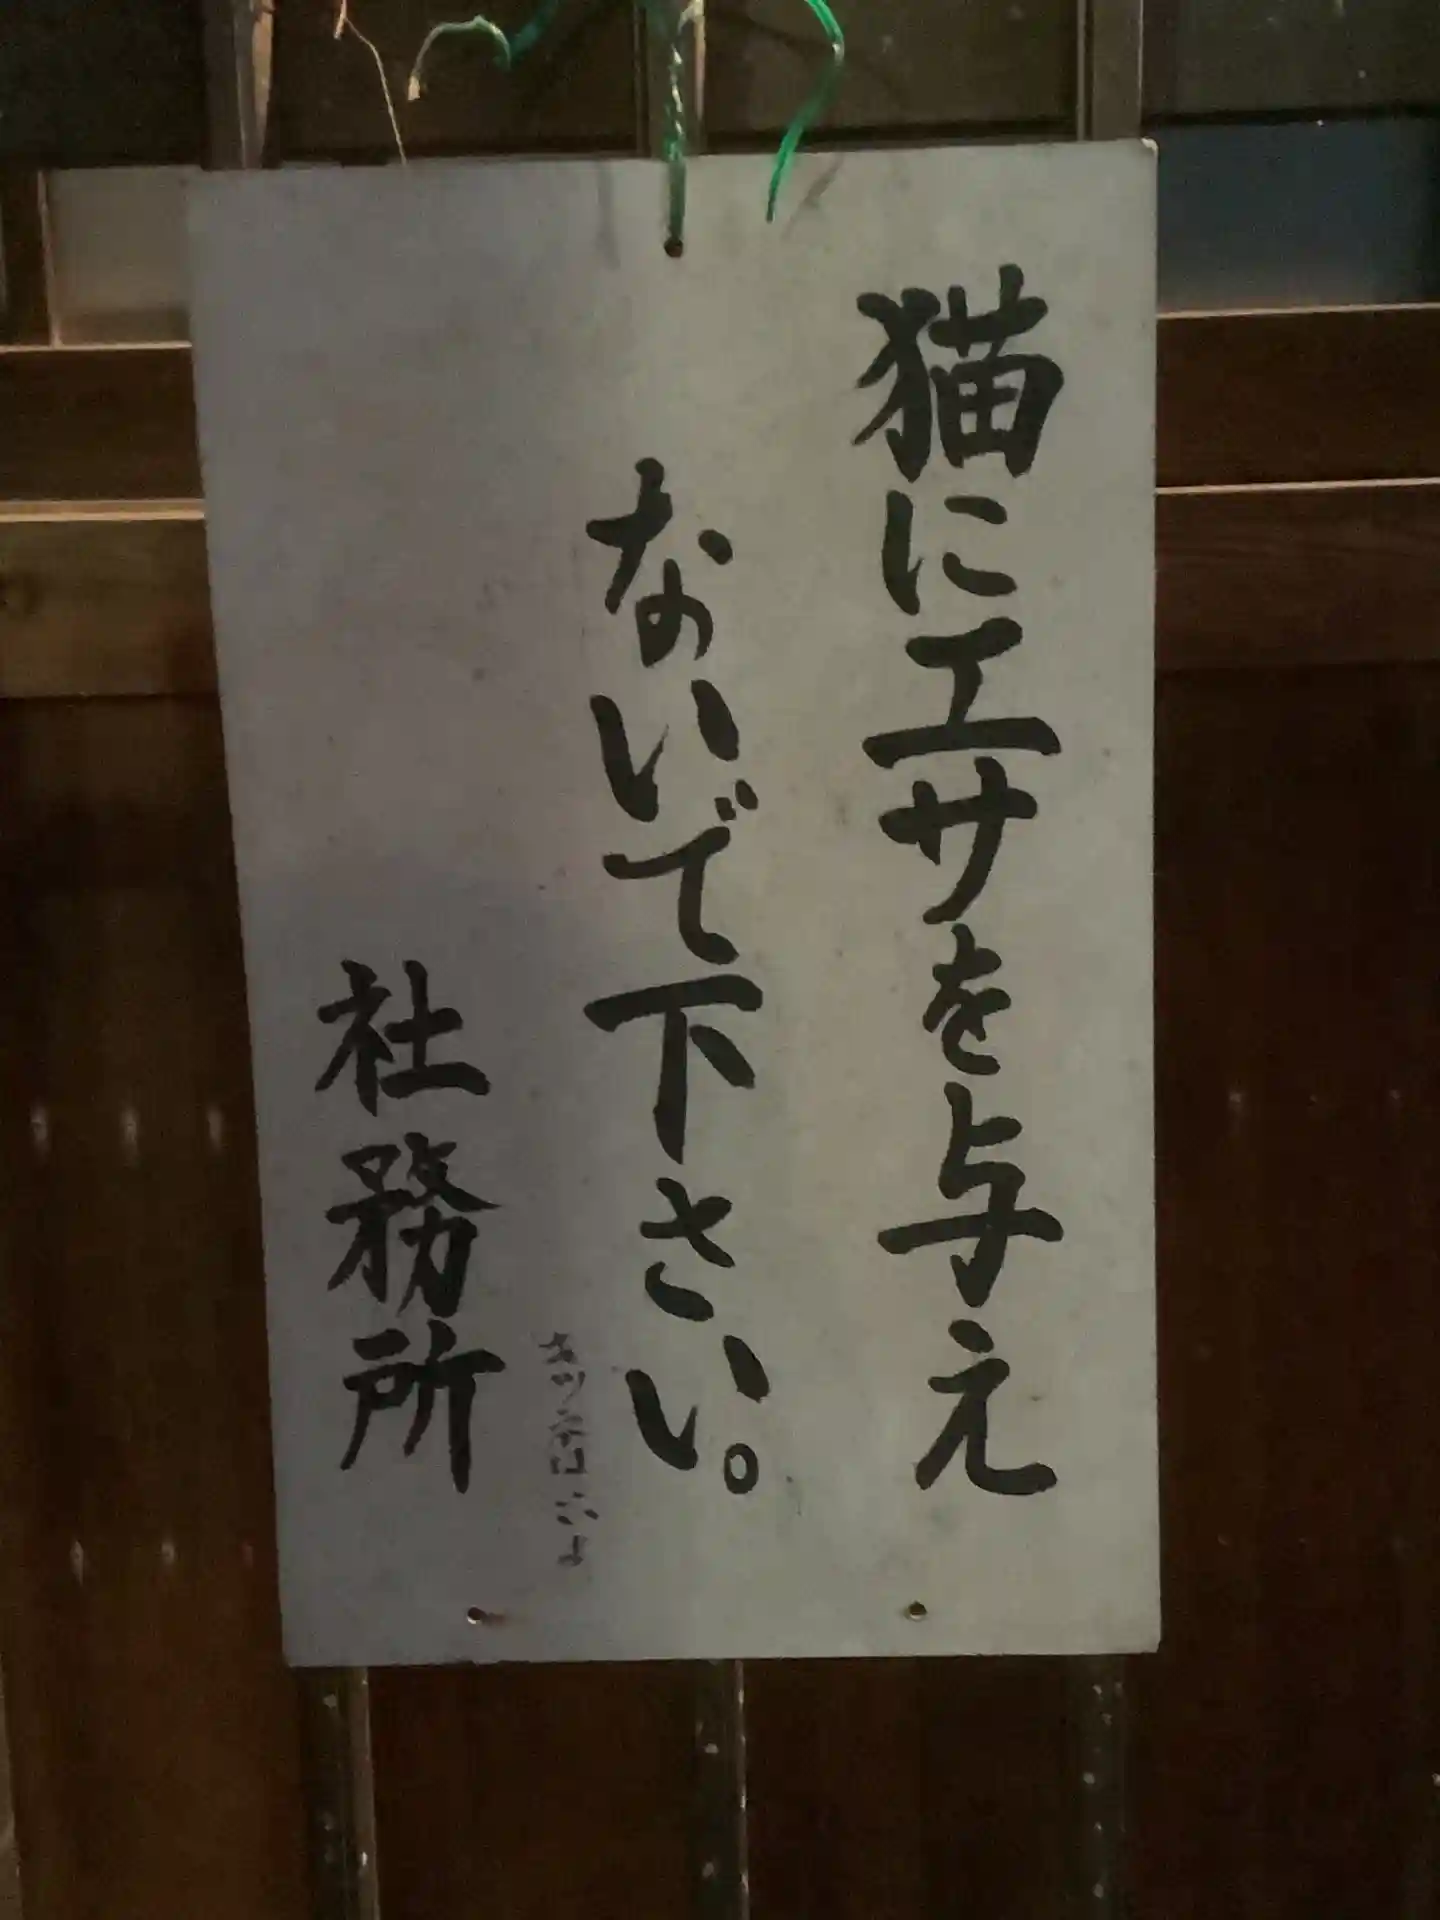 猫にエサを与え
ないで下さい。
社務所